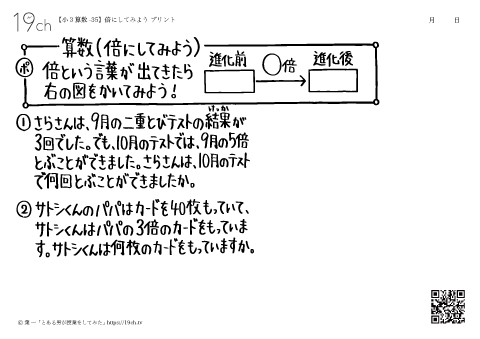 19ch 【小3算数-35】倍にしてみよう プリント 月 日
算数(倍にしてみよう)
ポ 倍という言葉が出てきたら
右の図をかいてみよう!
進化前 ○倍 進化後
① さらさんは、9月の二重とびテストの結果が
けっか
3回でした。でも、10月のテストでは、9月の5倍
とぶことができました。さらさんは、10月のテスト
で何回とぶことができましたか。
② サトシくんのパパはカードを40枚もっていて、
サトシくんはパパの3倍のカードをもっていま
す。サトシくんは何枚のカードをもっていますか。
© 葉一「とある男が授業をしてみた」https://19ch.tv